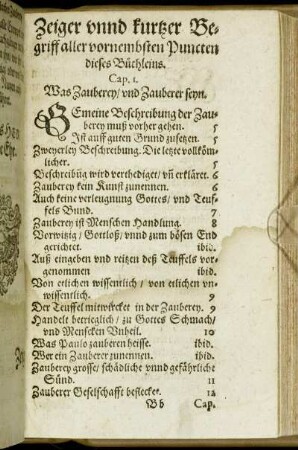 Zeiger vnnd kurtzer Be-
griff aller vornembsten Puncten
dieses Büchleins.
Cap. 1.
Was Zauberey/ vnd Zauberer seyn.
GEmeine Beschreibung der Zau-
berey muß vorher gehen. 5
Ist auff guten Grund zusetzen. 5
Zweyerley Beschreibung. Die letzte vollköm̃-
licher. 5
Beschreibūg wird verthediget/ vñ erkläret. 6
Zauberey kein Kunst zunennen. 6
Auch keine verleugnung Gottes/ vnd Teuf-
fels Bund. 7
Zauberey ist Menschen Handlung. 8
Vorwitzig/ Gottloß/ vnnd zum bösen End
gerichtet. ibid.
Auß eingeben vnd reitzen deß Teuffels vor-
genommen ibid.
Von etlichen wissentlich/ von etlichen vn-
wissentlich. 9
Der Teuffel mitwircket in der Zauberey. 9
Handelt betrieglich/ zu Gottes Schmach/
vnd Menschen Vnheil. 10
Was Paulo zauberen heisse. ibid.
Wer ein Zauberer zunennen. ibid.
Zauberey grosse/ schädliche vnnd gefährliche
Sünd. 11
Zauberer Geselschafft beflecket. 12
Bb Cap.